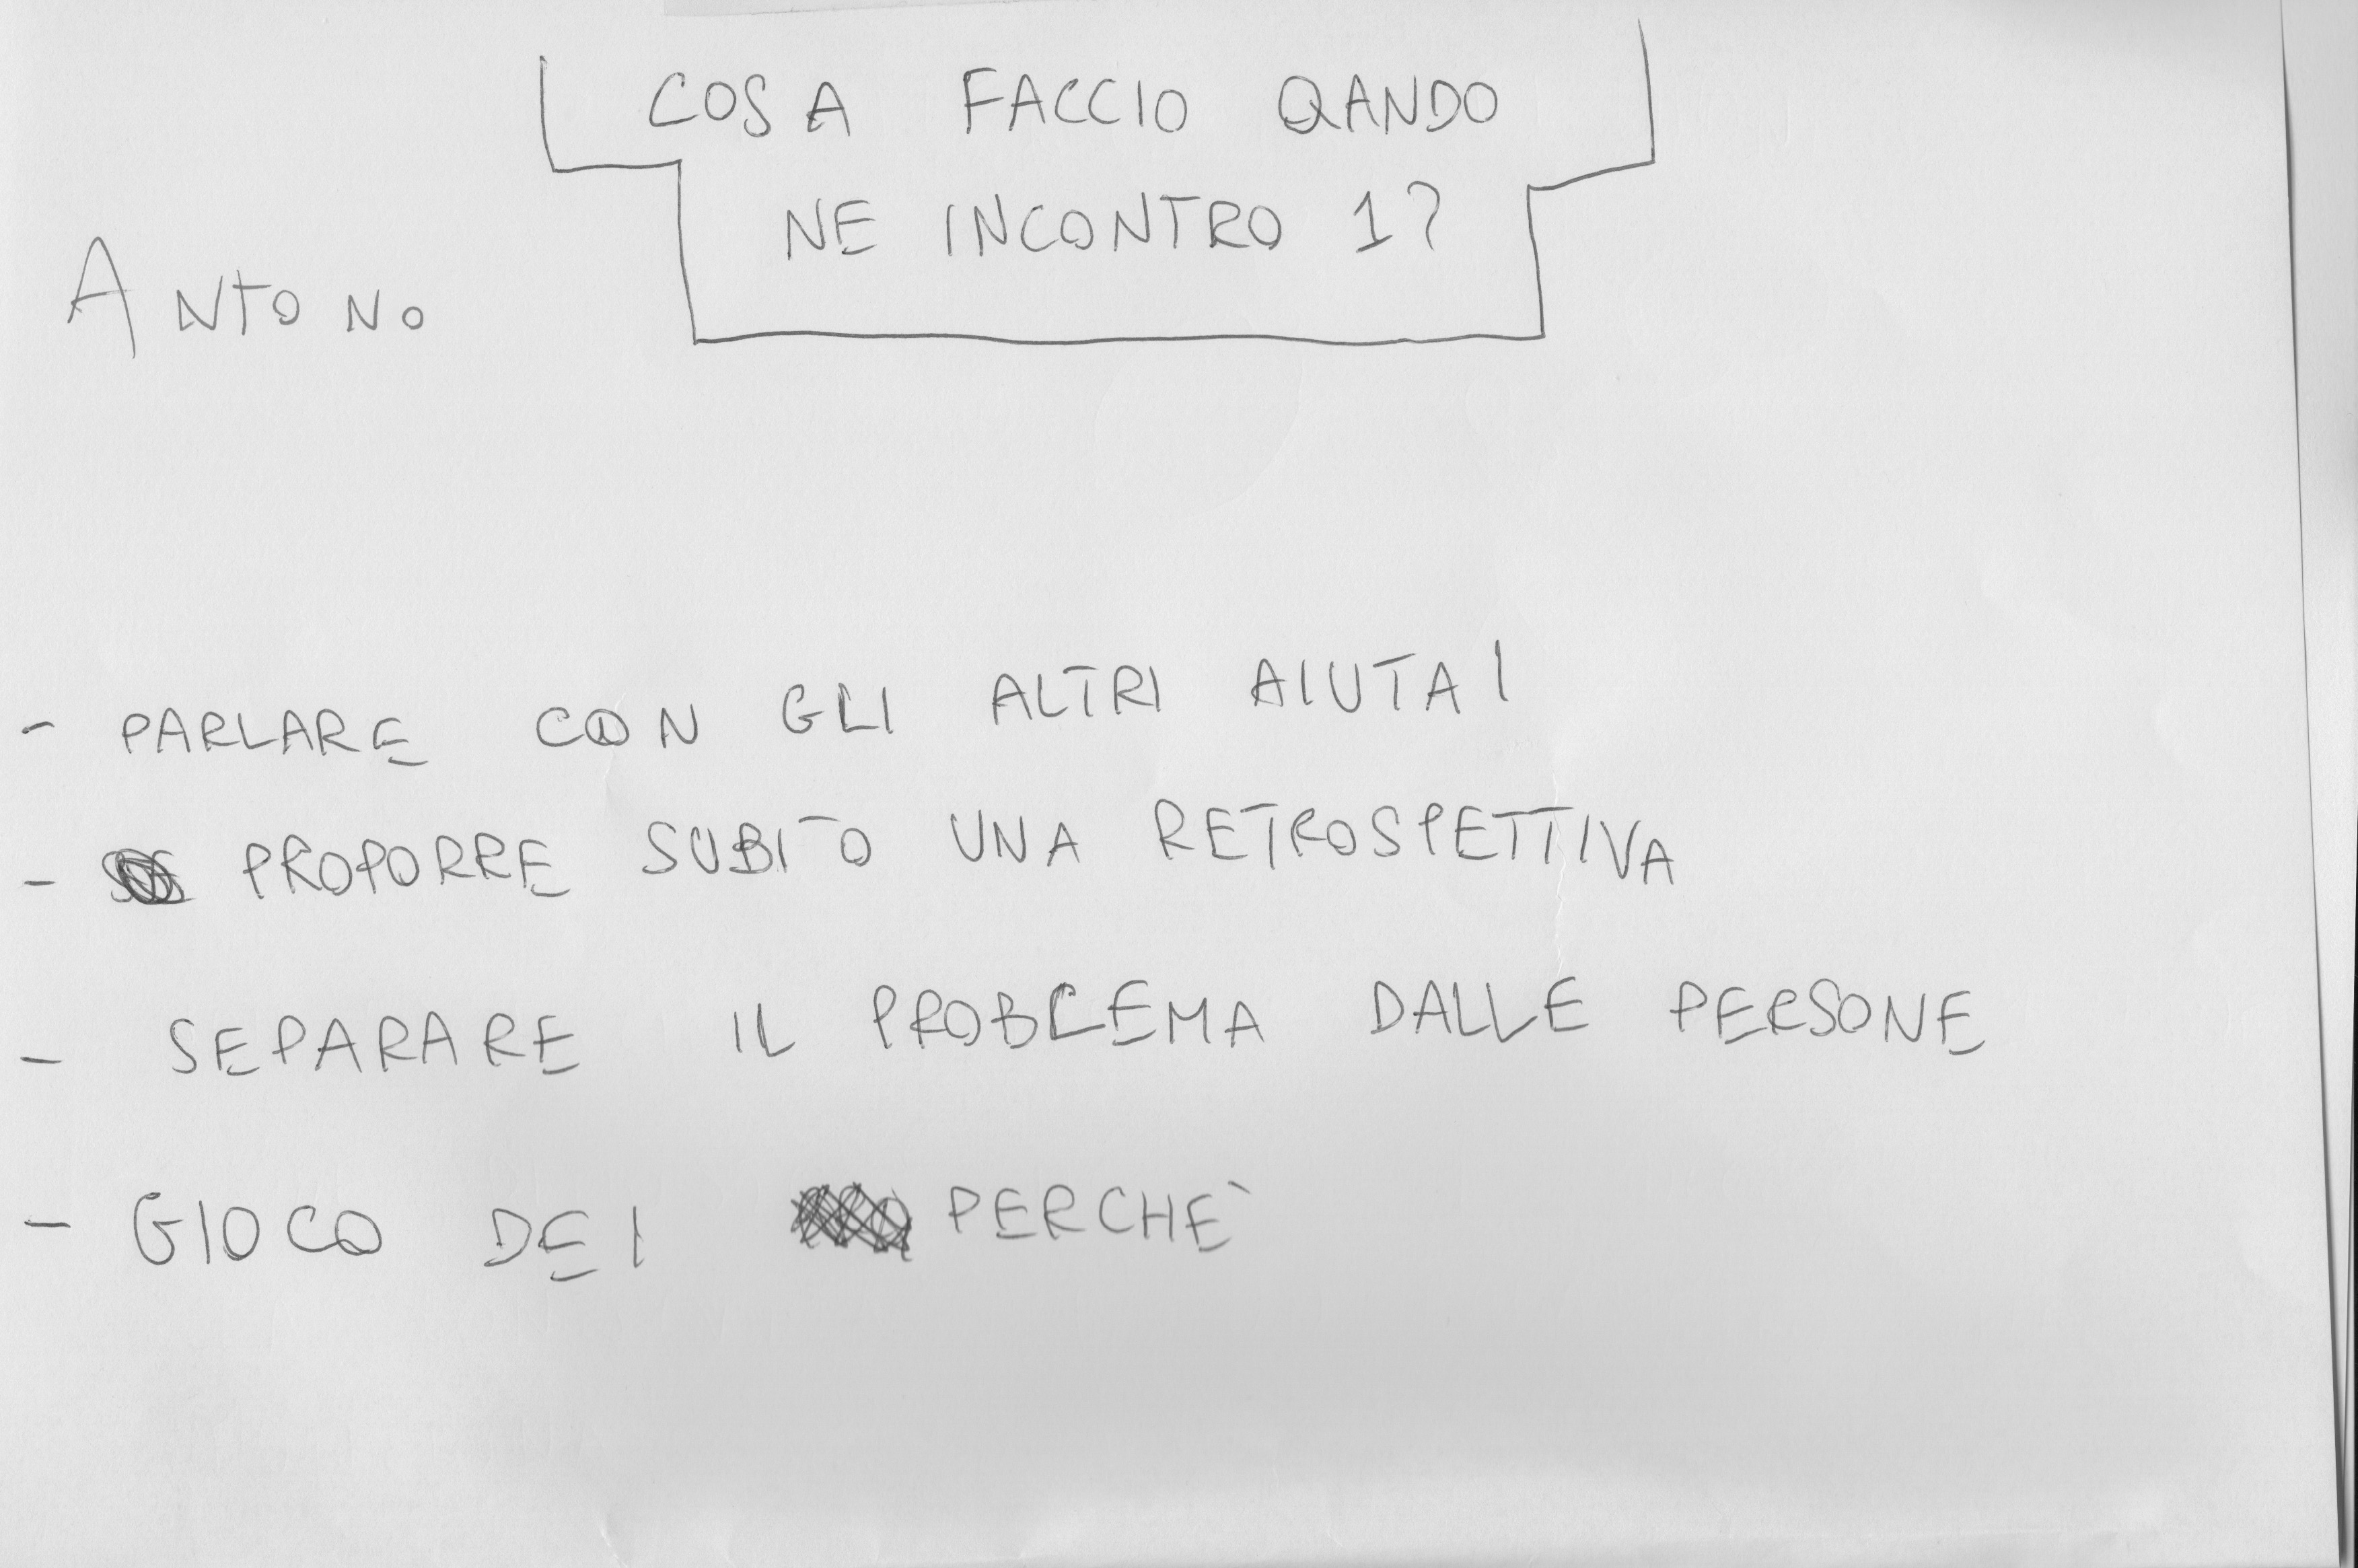 COSA FACCIO QANDO
NE INCONTRO 1?
ANTONO
- PARLARE CON GLI ALTRI AIUTA!
- PROPORRE SUBITO UNA RETROSPETTIVA
- SEPARARE IL PROBLEMA DALLE PERSONE
- GIOCO DEI PERCHE`